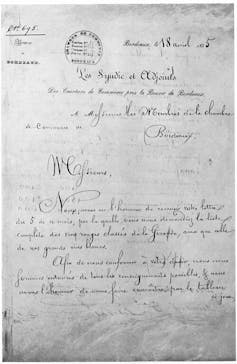 N° 695.
Bordeaux, le 18 avril 1855
CHAMBRE DE COMMERCE
BORDEAUX
BORDEAUX.
Les Syndic et Adjoints
Des Courtiers de Commerce près la Bourse de Bordeaux.
A Messieurs les Membres de la Chambre
de Commerce de
Bordeaux
Messieurs,
Nous avons eu l'honneur de recevoir votre lettre
du 5 de ce mois, par laquelle vous nous demandez la liste
complète des vins rouges classés de la Gironde, ainsi que celle
de nos grands vins blancs.
Afin de nous conformer à votre désir, nous nous
sommes entourés de tous les renseignements possibles, & nous
avons l'honneur de vous faire connaître, par le tableau
ci-joint,